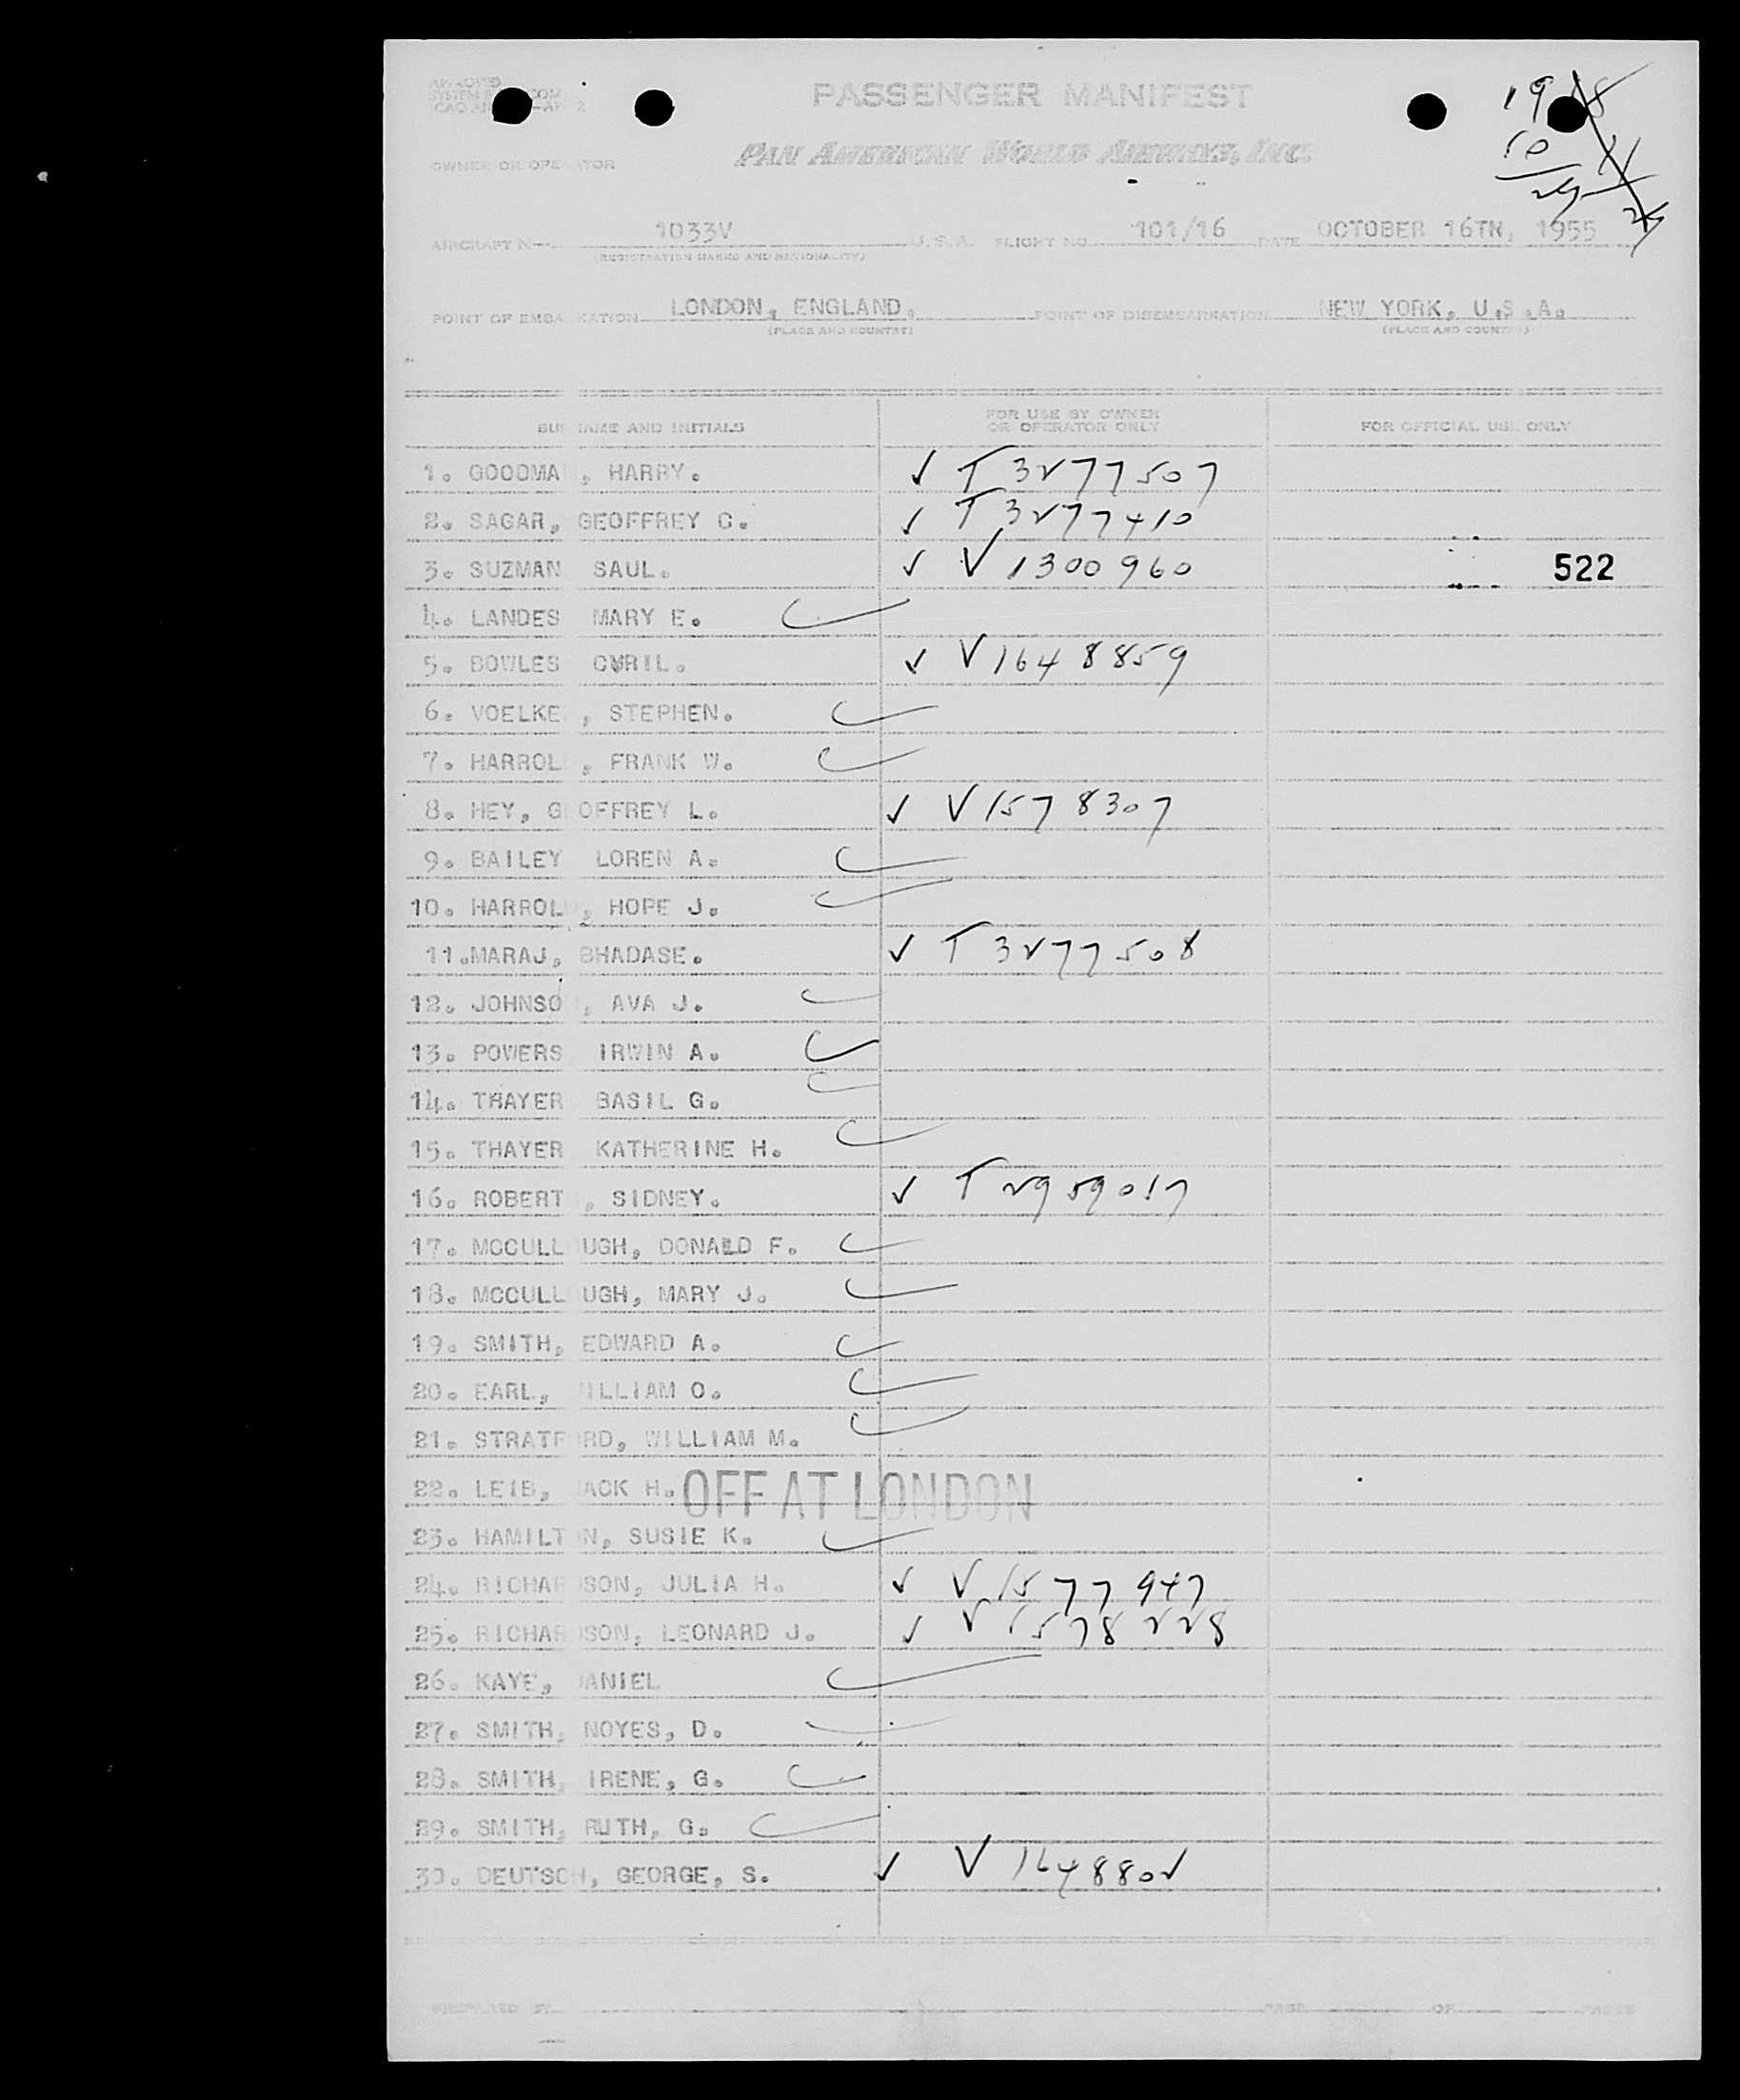 APPROVED
PASSENGER MANIFEST
PAN AMERICAN WORLD AIRWAYS, INC.
OWNER OR OPE TOR
AIRCRAFT N 1033V U.S.A. FLIGHT NO. 101/16 DATE OCTOBER 16TH, 1955
(REGISTRATION MARKS AND NATIONALITY)
POINT OF EMBA KATION LONDON, ENGLAND. POINT OF DISEMBARKATION NEW YORK, U.S.A.
(PLACE AND COUNTRY) (PLACE AND COUNTRY)
SU NAME AND INITIALS FOR USE BY OWNER OR OPERATOR ONLY FOR OFFICIAL USE ONLY
1. GOODMA , HARRY. ✓ T 3277507
2. SAGAR, GEOFFREY C. ✓ T 3277410
3. SUZMAN SAUL. ✓ V 1300960 522
4. LANDES MARY E.
5. BOWLES CYRIL. ✓ V 1648859
6. VOELKE , STEPHEN.
7. HARROL , FRANK W.
8. HEY, G OFFREY L. ✓ V 1578307
9. BAILEY LOREN A.
10. HARROL , HOPE J.
11.MARAJ, BHADASE. ✓ T 3277508
12. JOHNSO , AVA J.
13. POWERS IRWIN A.
14. THAYER BASIL G.
15. THAYER KATHERINE H.
16. ROBERT , SIDNEY. ✓ T 2959017
17. MCCULL UGH, DONALD F.
18. MCCULL UGH, MARY J.
19. SMITH, EDWARD A.
20. EARL, ILLIAM O.
21. STRATF RD, WILLIAM M.
22. LEIB, ACK H. OFF AT LONDON
23. HAMILT N, SUSIE K.
24. RICHAR SON, JULIA H. ✓ V 1577947
25. RICHAR SON, LEONARD J. ✓ V 1578228
26. KAYE, ANIEL
27. SMITH, NOYES, D.
28. SMITH, IRENE, G.
29. SMITH, RUTH, G.
30. DEUTSCH, GEORGE, S. ✓ V 1648802
PREPARED BY PAGE OF PAGES